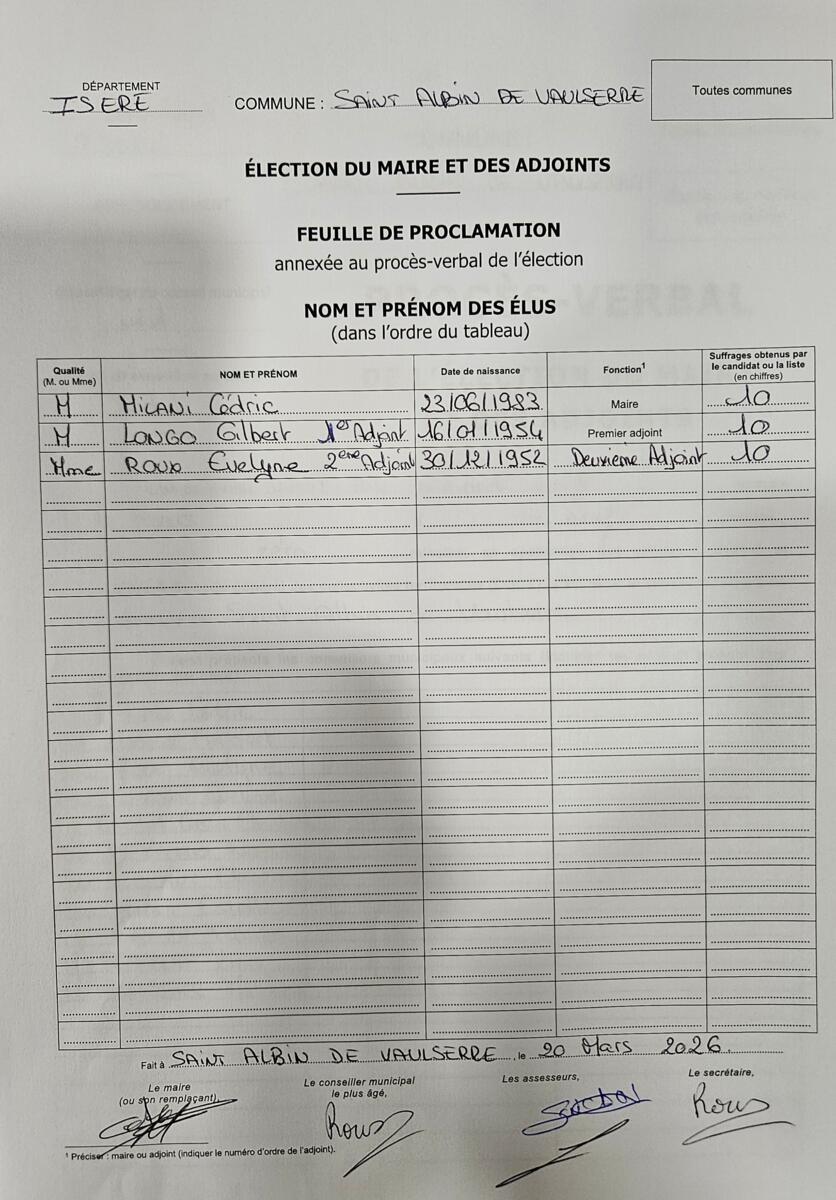 DÉPARTEMENT
ISERE
COMMUNE : SAINT ALBIN DE VAULSERRE
Toutes communes
ÉLECTION DU MAIRE ET DES ADJOINTS
FEUILLE DE PROCLAMATION
annexée au procès-verbal de l'élection
NOM ET PRÉNOM DES ÉLUS
(dans l'ordre du tableau)
Qualité (M. ou Mme) NOM ET PRÉNOM Date de naissance Fonction¹ Suffrages obtenus par le candidat ou la liste (en chiffres)
M MILANI Cédric 23/06/1983 Maire 10
M LONGO Gilbert 1er Adjoint 16/01/1954 Premier adjoint 10
Mme ROUX Evelyne 2ème Adjoint 30/12/1952 Deuxième Adjoint 10
Fait à SAINT ALBIN DE VAULSERRE, le 20 Mars 2026.
Le maire
(ou son remplaçant),
Le conseiller municipal
le plus âgé,
Les assesseurs,
Le secrétaire,
Roux
Roux
¹ Préciser : maire ou adjoint (indiquer le numéro d'ordre de l'adjoint).